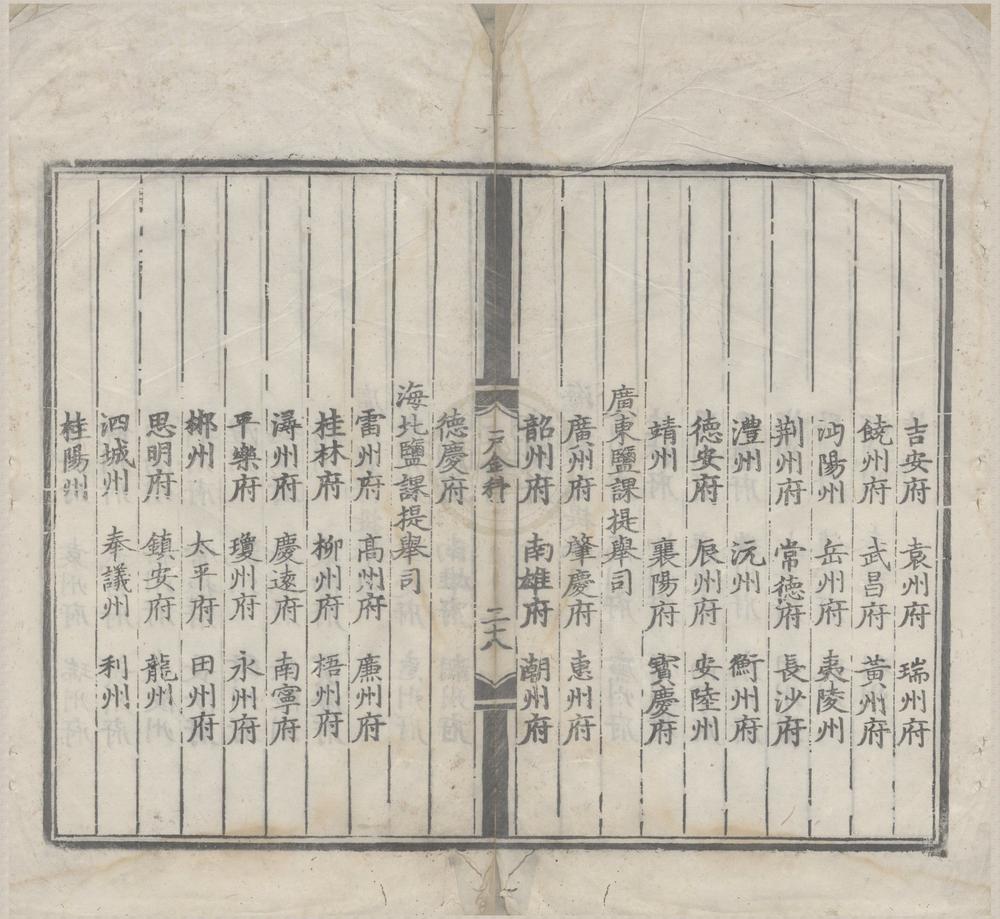 吉安府 袁州府 瑞州府
饒州府 武昌府 黃州府
沔陽州 岳州府 夷陵州
荆州府 常德府 長沙府
灃州 沅州 衡州府
德安府 辰州府 安陸州
靖州 襄陽府 寳慶府
廣東鹽課提舉司
廣州府 肇慶府 惠州府
韶州府 南雄府 潮州府
戶金科 二十八
德慶府
海北鹽課提舉司
雷州府 髙州府 廉州府
桂林府 柳州府 梧州府
潯州府 慶遠府 南寧府
平樂府 瓊州府 永州府
郴州 太平府 田州府
思明府 鎮安府 龍州
泗城州 奉議州 利州
桂陽州